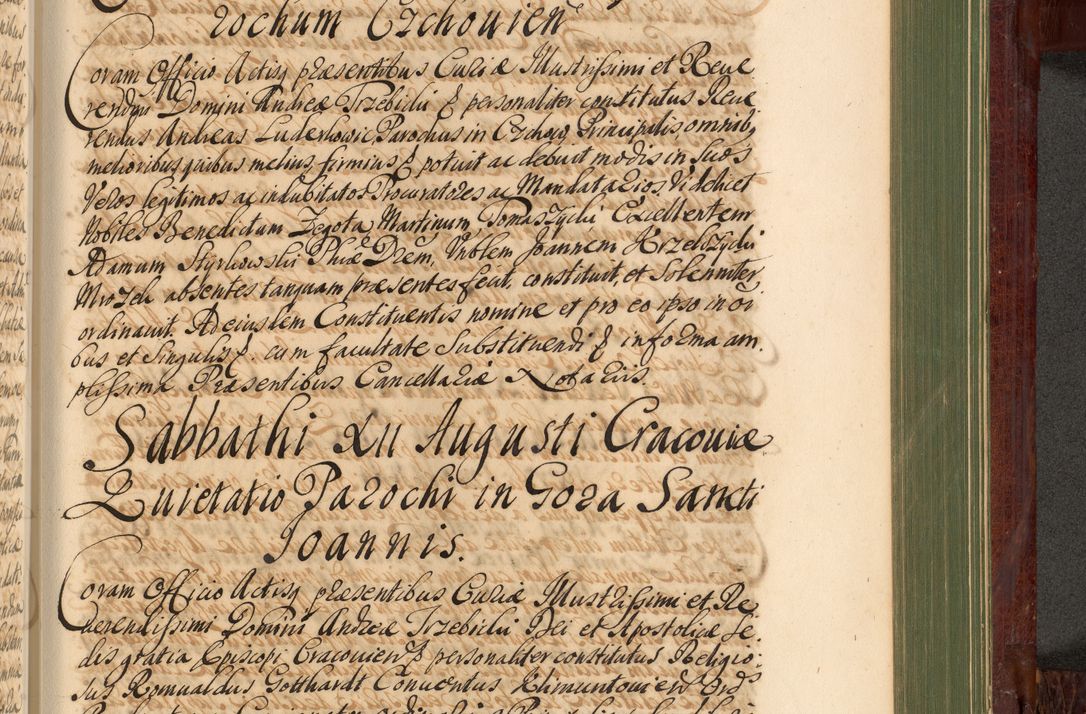 rochum Czchouien
Coram Officio Actisq præsentibus Curiæ Illustrissimi et Reue
rendissimi Domini Andreæ Trzebicki & personaliter constitutus Reue
rendus Andreas Luderkowic Parochus in Czchow Principalis omnibq
melioribus quibus melius firmius & potuit ac debuit modis in suos
Veros legitimos ac indubitatos Procuratores ac Mandatarios Videlicet
Nobiles Benedictum Zegota Martinum Tomaszycki Excellentem
Adamum Styrkowski Phiæ Drem, Noblem Joannem Krzekszycki
Mrozek absentes tanquam præsentes fecit, constituit, et Solenniter
ordinauit. Ad eiusdem Constituentis nomine et pro eo ipso in oi
bus et Singulis &. cum facultate Substituendi & in forma am.
plissima Præsentibus Cancellariæ Notariis.
Sabbathi XII Augusti Cracouiæ
Quietatio Parochi in Gora Sancti
Joannis.
Coram Officio Actisq præsentibus Curiæ Illustrissimi et Re
uerendissimi Domini Andreæ Trzebicki Dei et Apostolicæ Se.
dis gratia Episcopi Cracouien & personaliter constitutus Religio:
sus Romualdus Gotthardt Conuentus Klimuntouien Ord